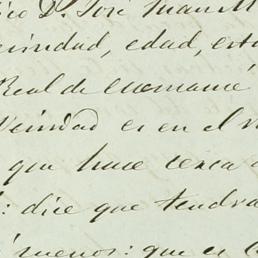 D.ⁿ José Juan M
cindad, edad, est
Real de
Vecindad es en el
que hace cerca
: dice que tendra
menos: que es